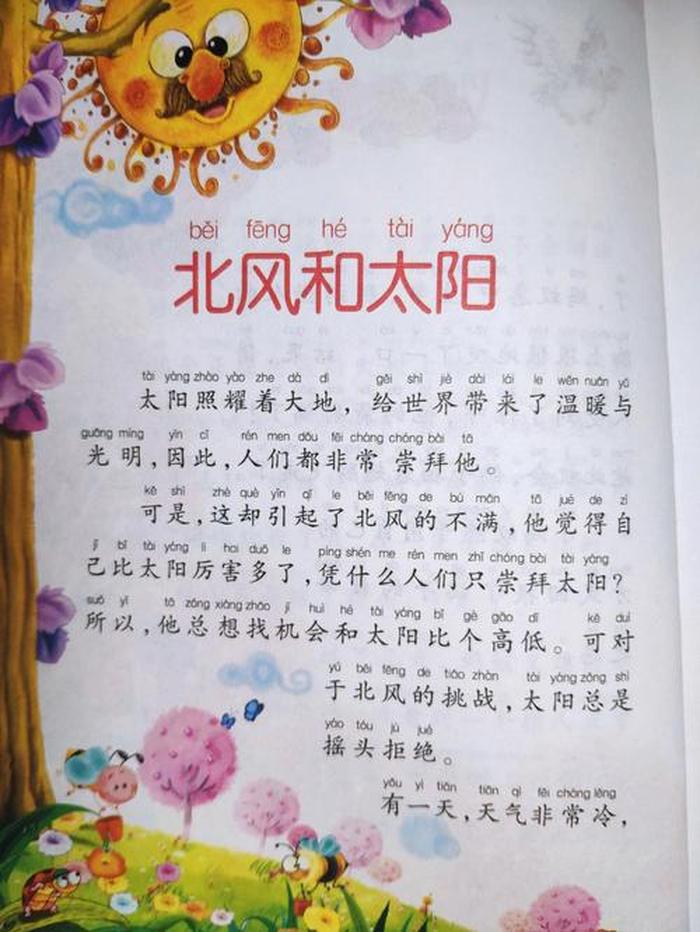 běi fēng hé tài yáng
北风和太阳
tài yàng zhào yào zhe dà dì gěi shì jiè dài lái le wēn nuǎn yǔ
太阳照耀着大地，给世界带来了温暖与
guāng míng yīn cǐ rén men dōu fēi cháng chóng bài tā
光明，因此，人们都非常崇拜他。
kě shì zhè què yǐn qǐ le běi fēng de bù mǎn tā jué de zì
可是，这却引起了北风的不满，他觉得自
jǐ bǐ tài yáng lì hai duō le píng shén me rén men zhǐ chóng bài tài yáng
己比太阳厉害多了，凭什么人们只崇拜太阳？
suǒ yǐ tā zǒng xiǎng zhǎo jī huì hé tài yáng bǐ gè gāo dī kě duì
所以，他总想找机会和太阳比个高低。可对
yú běi fēng de tiǎo zhàn tài yáng zǒng shì
于北风的挑战，太阳总是
yáo tóu jù jué
摇头拒绝。
yǒu yì tiān tiān qì fēi cháng lěng
有一天，天气非常冷，